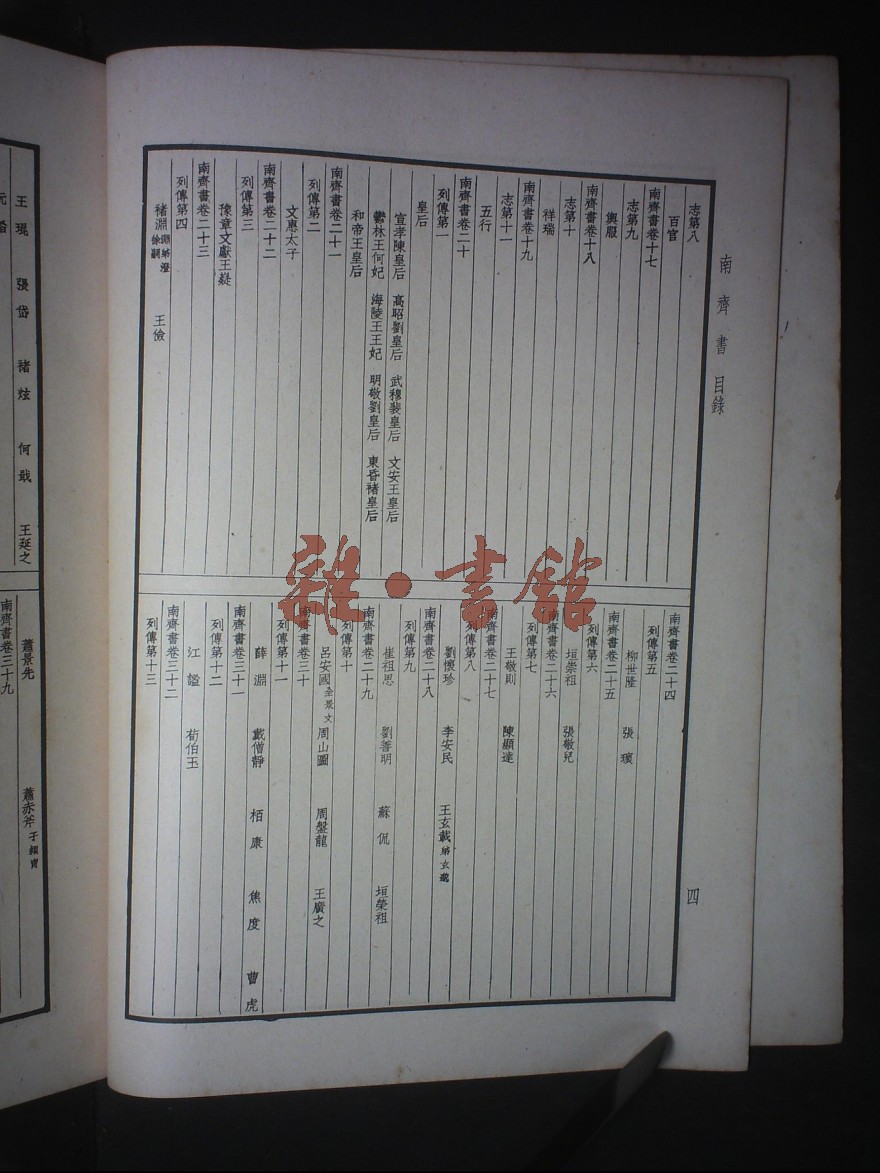 南齊書目錄
四
志第八
百官
南齊書卷十七
志第九
輿服
南齊書卷十八
志第十
祥瑞
南齊書卷十九
志第十一
五行
南齊書卷二十
列傳第一
皇后
宣孝陳皇后 高昭劉皇后 武穆裴皇后 文安王皇后
鬱林王何妃 海陵王王妃 明敬劉皇后 東昏褚皇后
和帝王皇后
南齊書卷二十一
列傳第二
文惠太子
南齊書卷二十二
列傳第三
豫章文獻王嶷
南齊書卷二十三
列傳第四
褚淵淵弟澄徐嗣 王儉
南齊書卷二十四
列傳第五
柳世隆 張瓌
南齊書卷二十五
列傳第六
垣崇祖 張敬兒
南齊書卷二十六
列傳第七
王敬則 陳顯達
南齊書卷二十七
列傳第八
劉懷珍 李安民 王玄載弟玄邈
南齊書卷二十八
列傳第九
崔祖思 劉善明 蘇侃 垣榮祖
南齊書卷二十九
列傳第十
呂安國全景文 周山圖 周盤龍 王廣之
南齊書卷三十
列傳第十一
薛淵 戴僧靜 栢康 焦度 曹虎
南齊書卷三十一
列傳第十二
江謐 荀伯玉
南齊書卷三十二
列傳第十三
王琨 張岱 褚炫 何戢 王延之
阮韜
蕭景先 蕭赤斧子穎冑
南齊書卷三十九
雜·書館